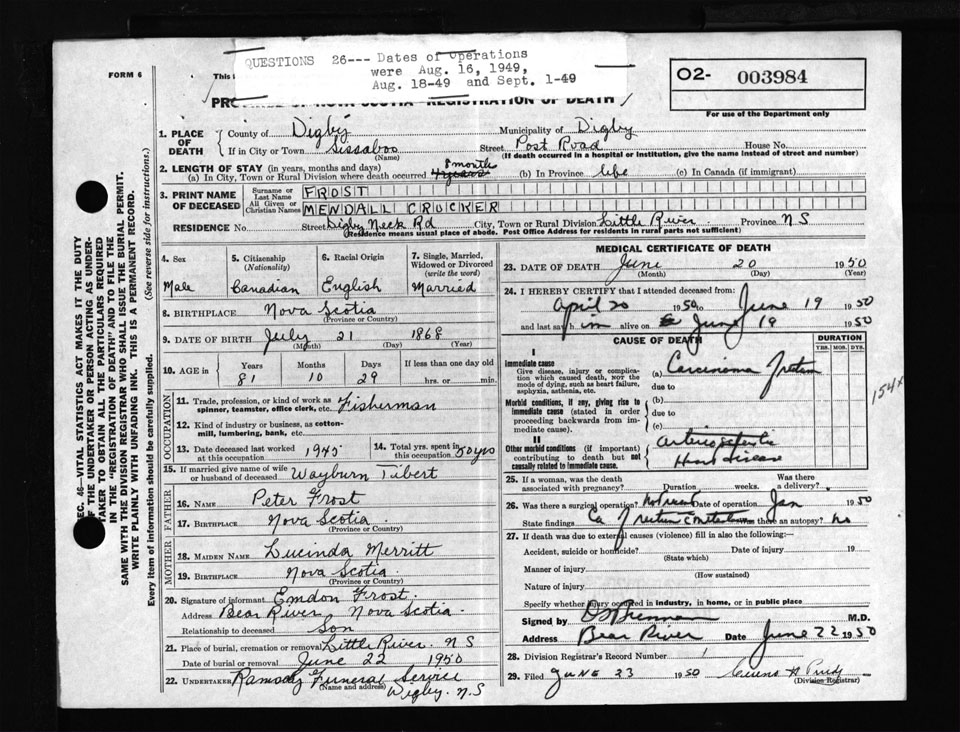 FORM 6
This i
QUESTIONS 26--- Dates of Operations
were Aug. 16, 1949,
Aug. 18-49 and Sept. 1-49
O2- 003984
For use of the Department only
PROVINCE OF NOVA SCOTIA REGISTRATION OF DEATH
1. PLACE OF DEATH
County of Digby Municipality of Digby
If in City or Town Sissaboo Street Post Road House No.
(Name) (If death occurred in a hospital or institution, give the name instead of street and number)
2. LENGTH OF STAY (in years, months and days)
(a) In City, Town or Rural Division where death occurred 8 months (b) In Province life (c) In Canada (if immigrant)
3. PRINT NAME OF DECEASED
Surname or Last Name FROST
All Given or Christian Names MENDALL CROCKER
RESIDENCE No. Street Digby Neck Rd City, Town or Rural Division Little River Province N S
(Residence means usual place of abode. Post Office Address for residents in rural parts not sufficient)
4. Sex Male
5. Citizenship (Nationality) Canadian
6. Racial Origin English
7. Single, Married, Widowed or Divorced (write the word) Married
8. BIRTHPLACE Nova Scotia
(Province or Country)
9. DATE OF BIRTH July 21 1868
(Month) (Day) (Year)
10. AGE in Years Months Days If less than one day old
81 10 29 hrs. or min.
OCCUPATION
11. Trade, profession, or kind of work as spinner, teamster, office clerk, etc. Fisherman
12. Kind of industry or business, as cotton-mill, lumbering, bank, etc.
13. Date deceased last worked at this occupation 1945
14. Total yrs. spent in this occupation 50 yrs
15. If married give name of wife or husband of deceased Wayburn Tibert
FATHER
16. NAME Peter Frost
17. BIRTHPLACE Nova Scotia
(Province or Country)
MOTHER
18. MAIDEN NAME Lucinda Merritt
19. BIRTHPLACE Nova Scotia
(Province or Country)
20. Signature of informant Emdon Frost
Address Bear River Nova Scotia
Relationship to deceased Son
21. Place of burial, cremation or removal Little River, N S
Date of burial or removal June 22 1950
22. UNDERTAKER Ramsay Funeral Service
(Name and address) Digby. N.S
MEDICAL CERTIFICATE OF DEATH
23. DATE OF DEATH June 20 1950
(Month) (Day) (Year)
24. I HEREBY CERTIFY that I attended deceased from:
April 20 1950 to June 19 1950
and last saw him alive on June 19 1950
CAUSE OF DEATH DURATION
YRS. MOS. DYS.
I
Immediate cause
Give disease, injury or complication which caused death, not the mode of dying, such as heart failure, asphyxia, asthenia, etc.
(a) Carcinoma of rectum
due to
Morbid conditions, if any, giving rise to immediate cause (stated in order proceeding backwards from immediate cause).
(b)
due to
(c)
II
Other morbid conditions (if important) contributing to death but not causally related to immediate cause.
Heart disease
154x
25. If a woman, was the death associated with pregnancy? Duration weeks. Was there a delivery?
26. Was there a surgical operation? Date of operation Jan 1950
State findings Ca of rectum Was there an autopsy? no
27. If death was due to external causes (violence) fill in also the following:—
Accident, suicide or homicide? Date of injury 19
(State which)
Manner of injury
(How sustained)
Nature of injury
Specify whether injury occurred in industry, in home, or in public place
Signed by M.D.
Address Bear River Date June 22 1950
28. Division Registrar's Record Number 1
29. Filed June 23 1950
(Division Registrar)
SEC. 46—VITAL STATISTICS ACT MAKES IT THE DUTY
OF THE UNDERTAKER OR PERSON ACTING AS UNDERTAKER TO OBTAIN ALL THE PARTICULARS REQUIRED
IN THE "REGISTRATION OF DEATH" AND TO FILE THE
SAME WITH THE DIVISION REGISTRAR WHO SHALL ISSUE THE BURIAL PERMIT.
WRITE PLAINLY WITH UNFADING INK. THIS IS A PERMANENT RECORD.
Every item of information should be carefully supplied. (See reverse side for instructions.)